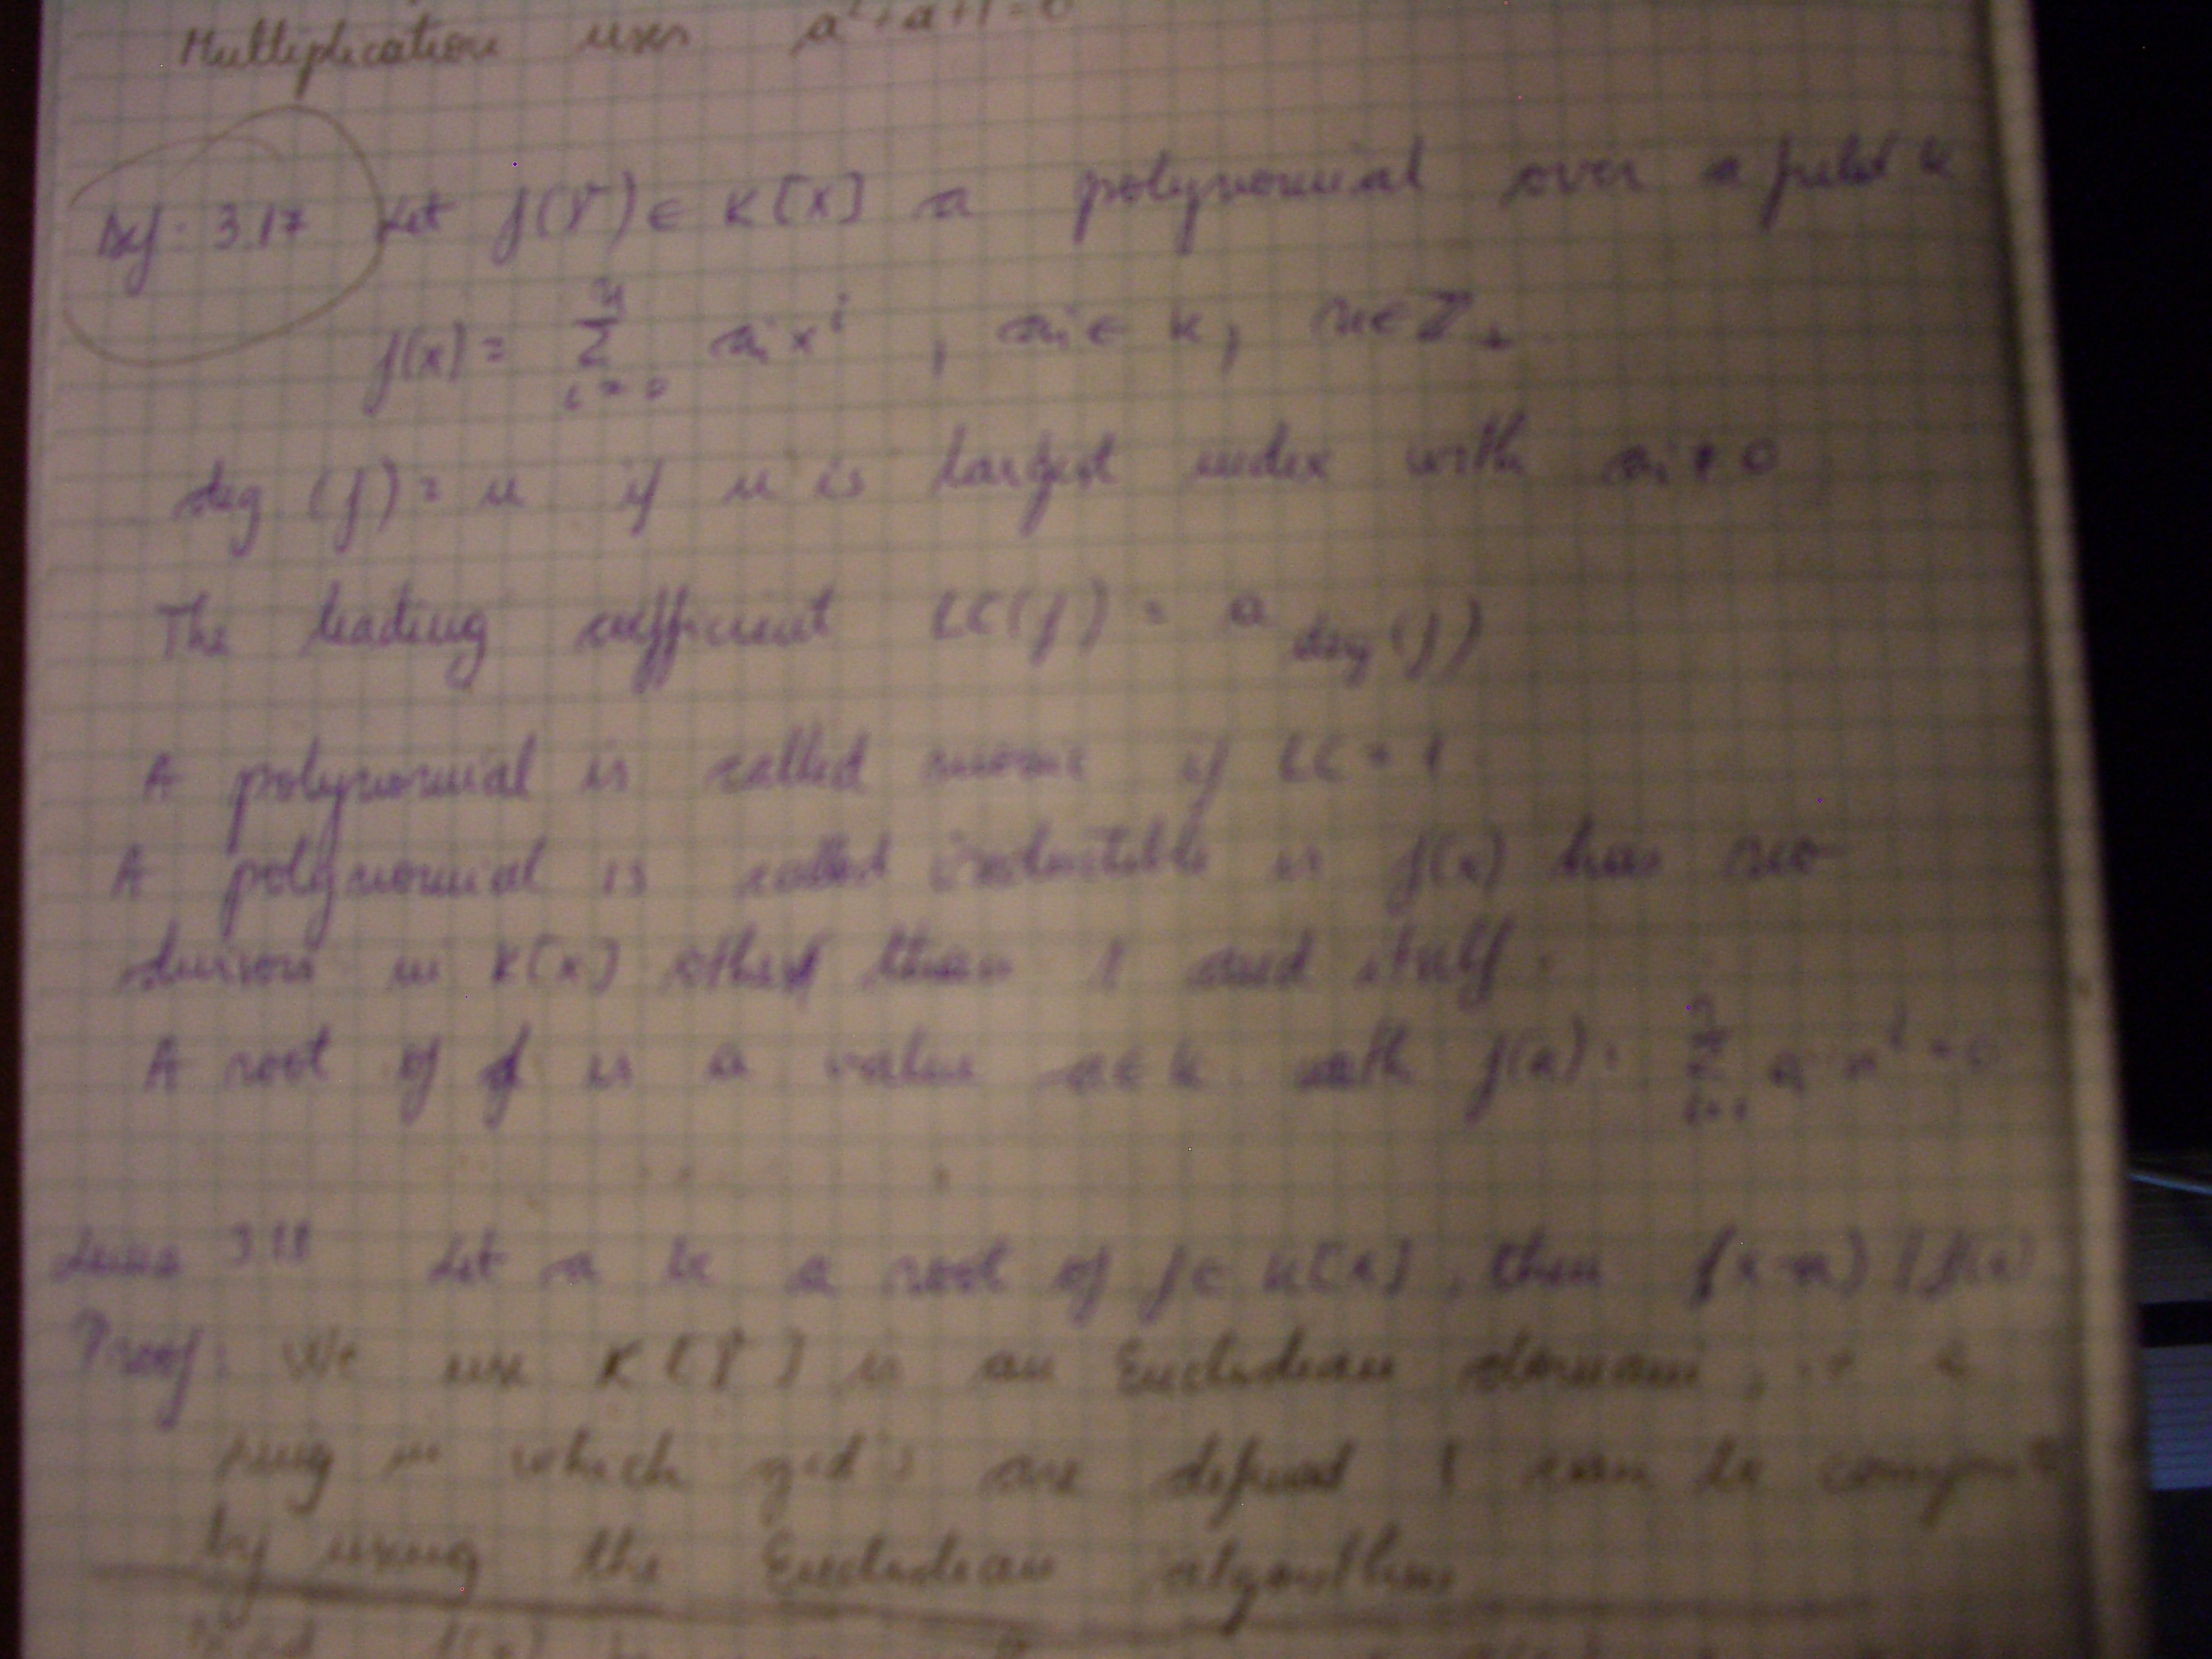 Multiplication uses a²+a+1=0
Def. 3.17 Let f(x) ∈ K[x] a polynomial over a field K
f(x) = Σ_{i=0}^{n} a_i x^i , a_i ∈ K, n ∈ Z_+
deg (f) = n if n is largest index with a_i ≠ 0
The leading coefficient LC(f) = a_{deg(f)}
A polynomial is called monic if LC = 1
A polynomial is called irreducible is f(x) has no
divisors in K[x] other than 1 and itself.
A root of f is a value a ∈ K with f(a) = Σ a_i a^i = 0
Lemma 3.18 Let a be a root of f ∈ K[x], then (x-a) | f(x)
Proof: We use K[x] is an Euclidean domain,
ring in which gcd's are defined & can be
by using the Euclidean algorithm